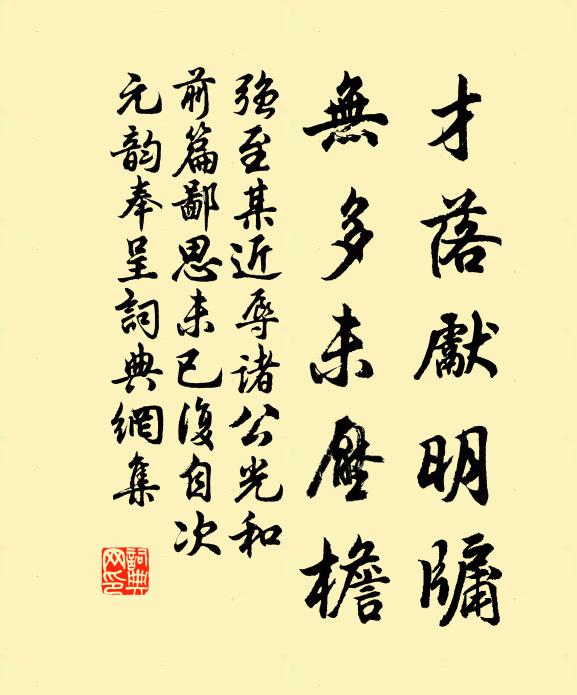 才落獻明牖
無多未壓檐
强至某近辱諸公光和
前篇鄙思未已復自次
元韵奉呈詞典網集
詞典网印